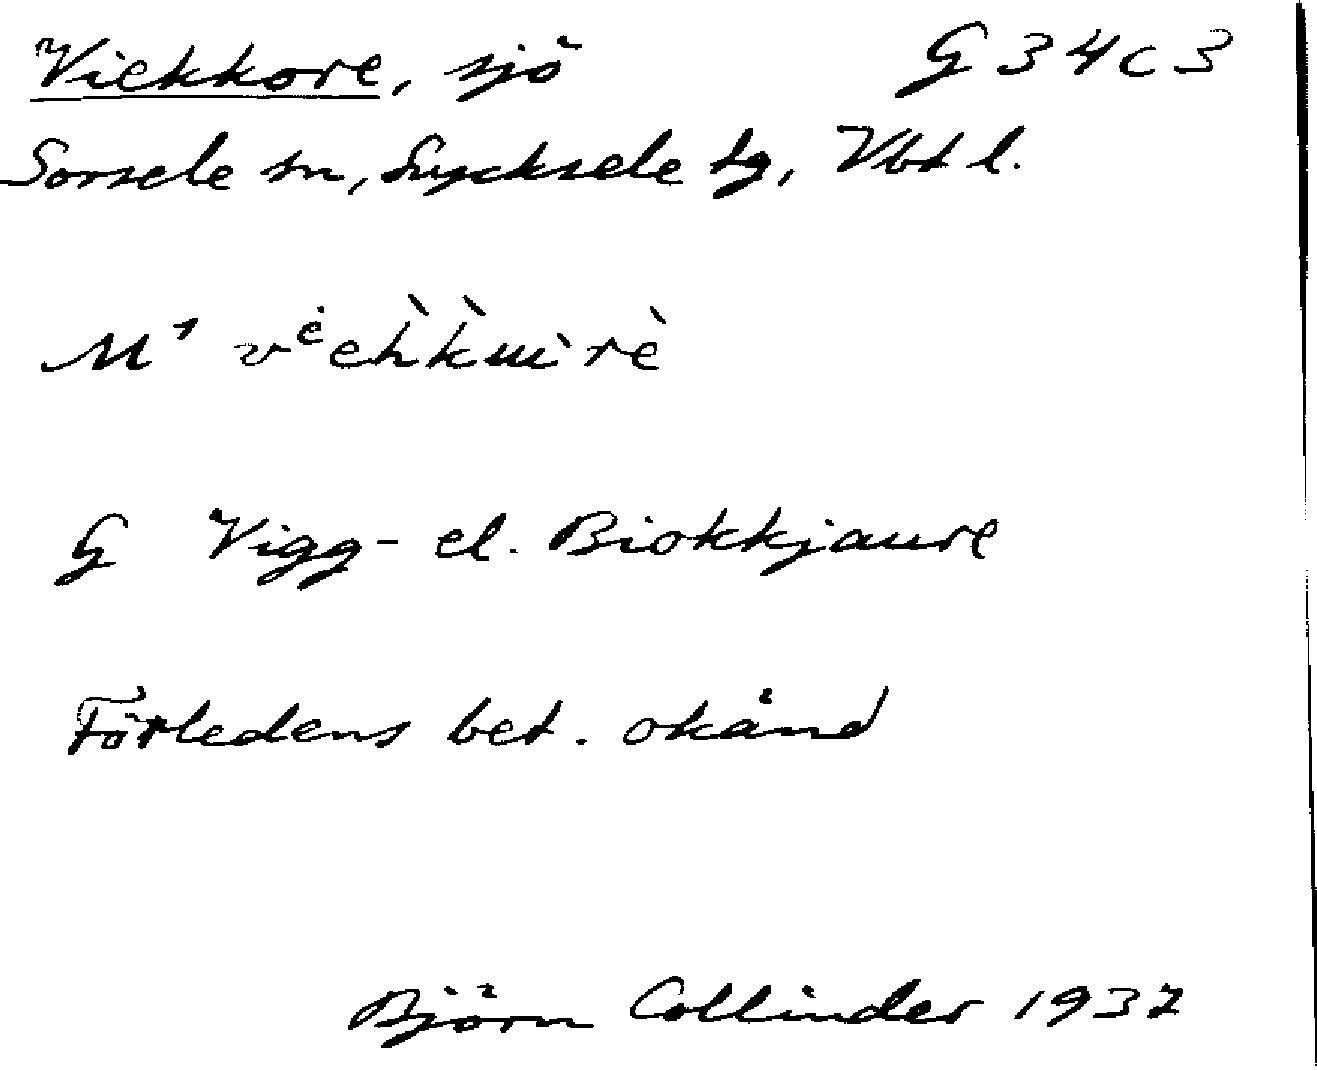 Viekkore, sjö G 34 c 3
Sorsele sn, Lycksele tg, Vbt l.
M¹ vėeh̀k̀ɯ̀rè
G Vigg- el. Biokkjaure
Förledens bet. okänd
Björn Collinder 1937